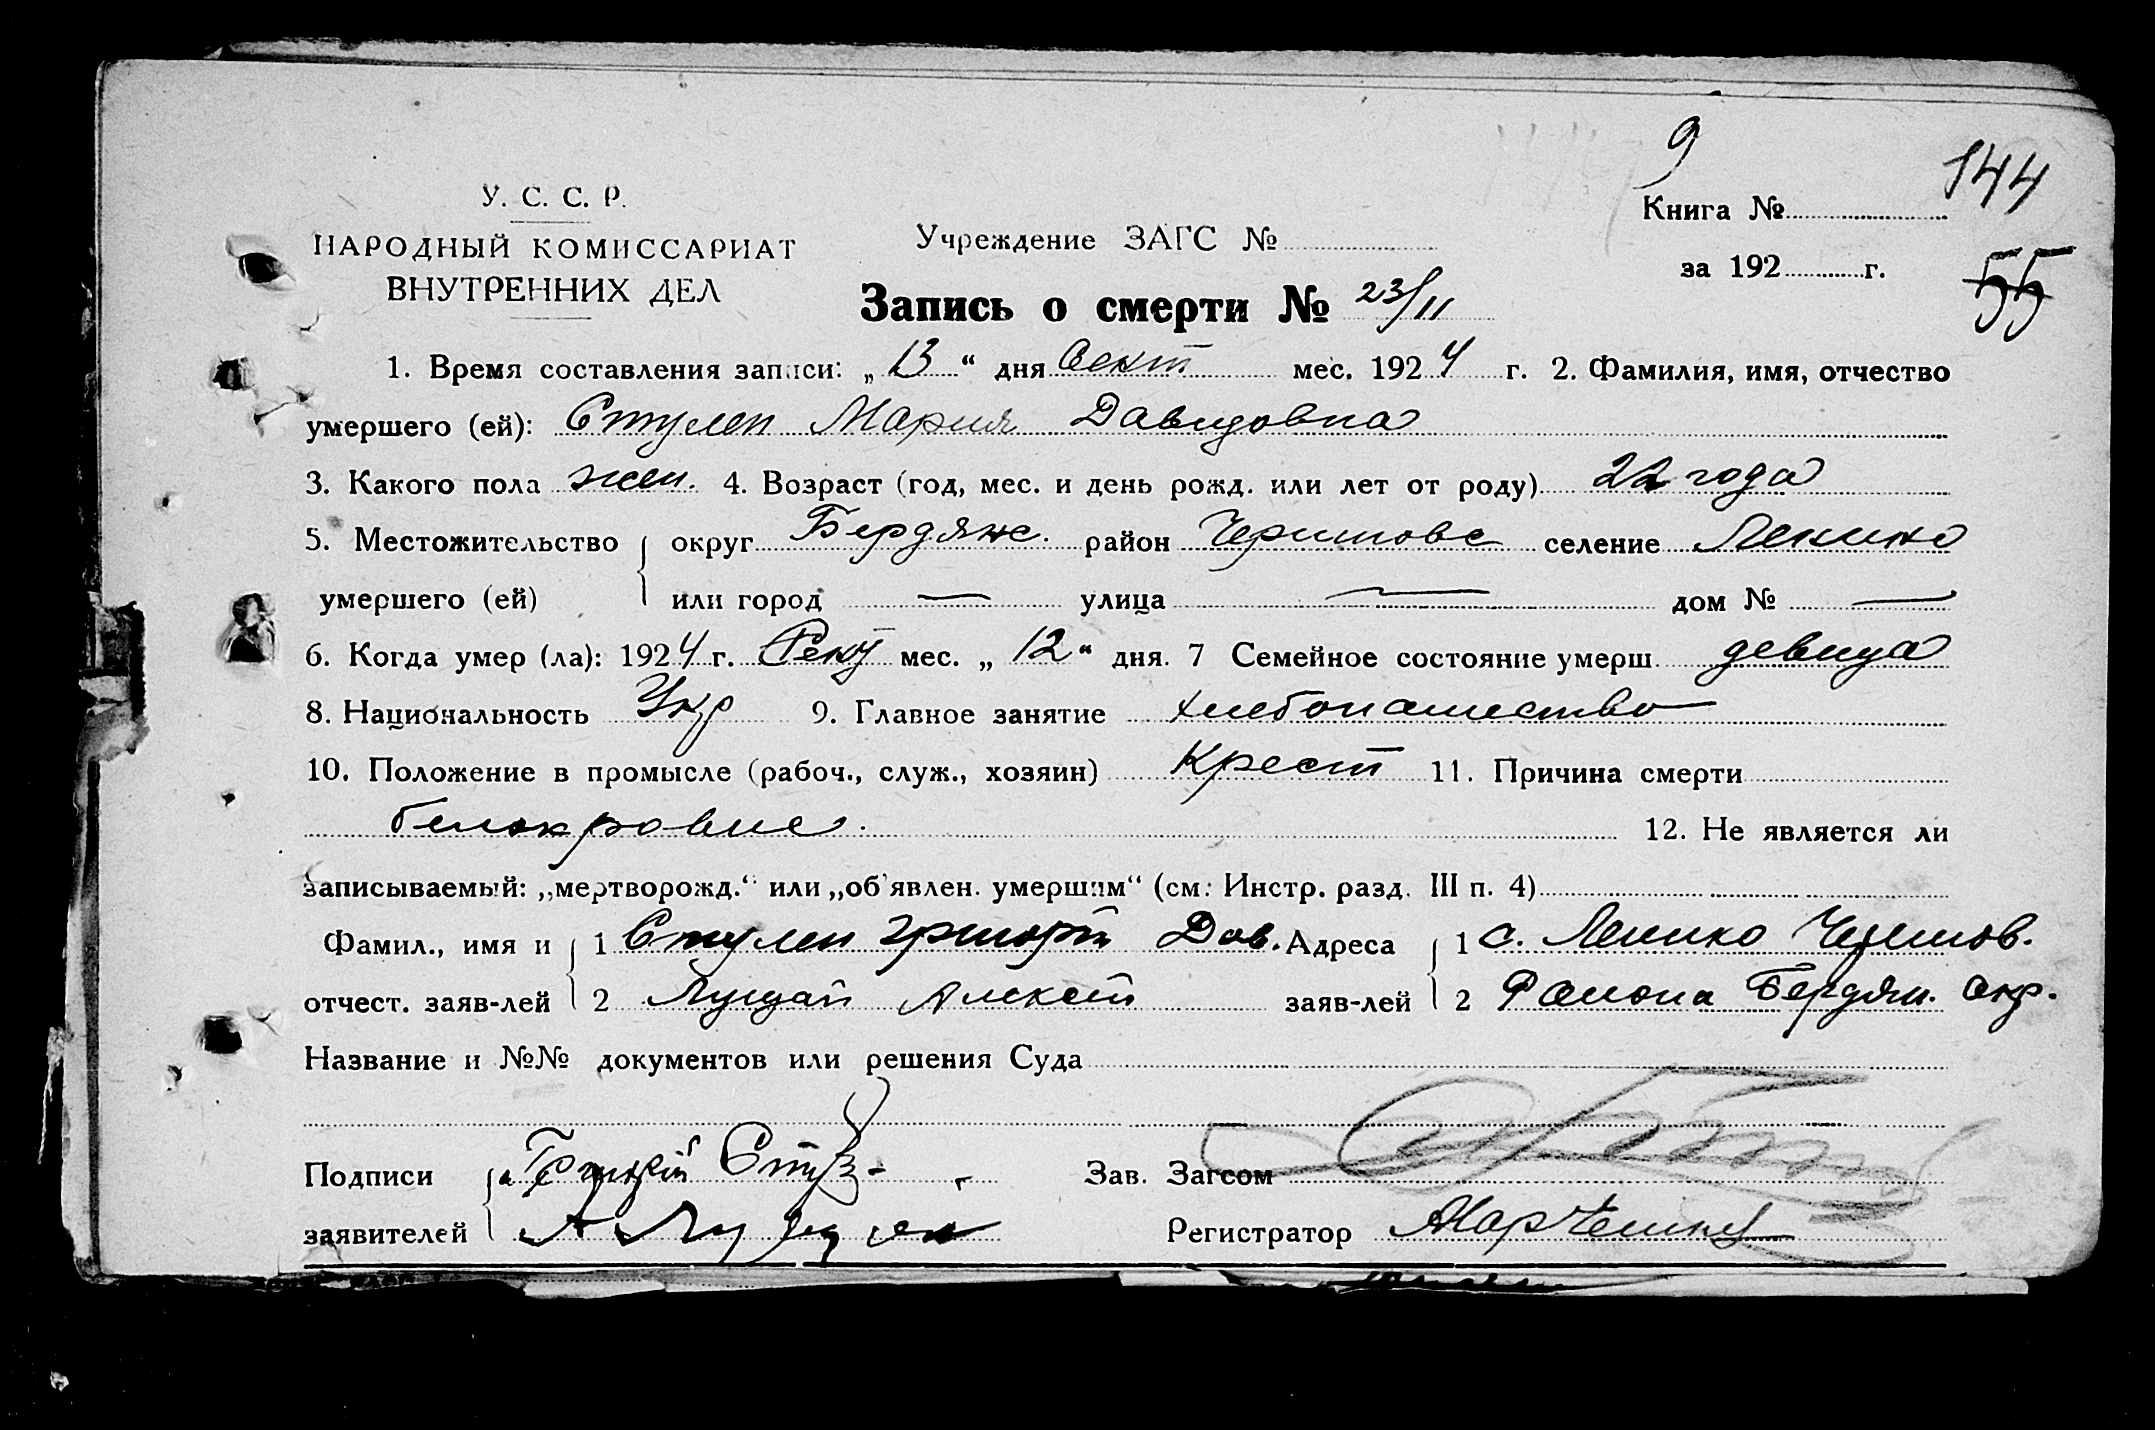 9
144
У. С. С. Р.
НАРОДНЫЙ КОМИССАРИАТ
ВНУТРЕННИХ ДЕЛ
Учреждение ЗАГС №
Книга №
за 192 г.
55
Запись о смерти № 23/11
1. Время составления записи: „ 13 “ дня Сент мес. 1924 г. 2. Фамилия, имя, отчество
умершего (ей): Стулен Мария Давидовна
3. Какого пола жен. 4. Возраст (год, мес. и день рожд. или лет от роду) 22 года
5. Местожительство округ Бердянс. район селение Ленино
умершего (ей) или город — улица — дом № —
6. Когда умер (ла): 1924 г. мес. „ 12 “ дня. 7 Семейное состояние умерш. девица
8. Национальность Укр 9. Главное занятие хлебопашество
10. Положение в промысле (рабоч., служ., хозяин) Крест 11. Причина смерти
белокровие. 12. Не является ли
записываемый: „мертворожд.“ или „об'явлен. умершим“ (см. Инстр. разд. III п. 4)
Фамил., имя и 1 Стулен Григорий Дав. Адреса 1 с. Ленино
отчест. заяв-лей 2 Алексей заяв-лей 2 Района Бердян. Окр.
Название и №№ документов или решения Суда
Подписи Григорий Зав. Загсом
заявителей А Регистратор Марченко